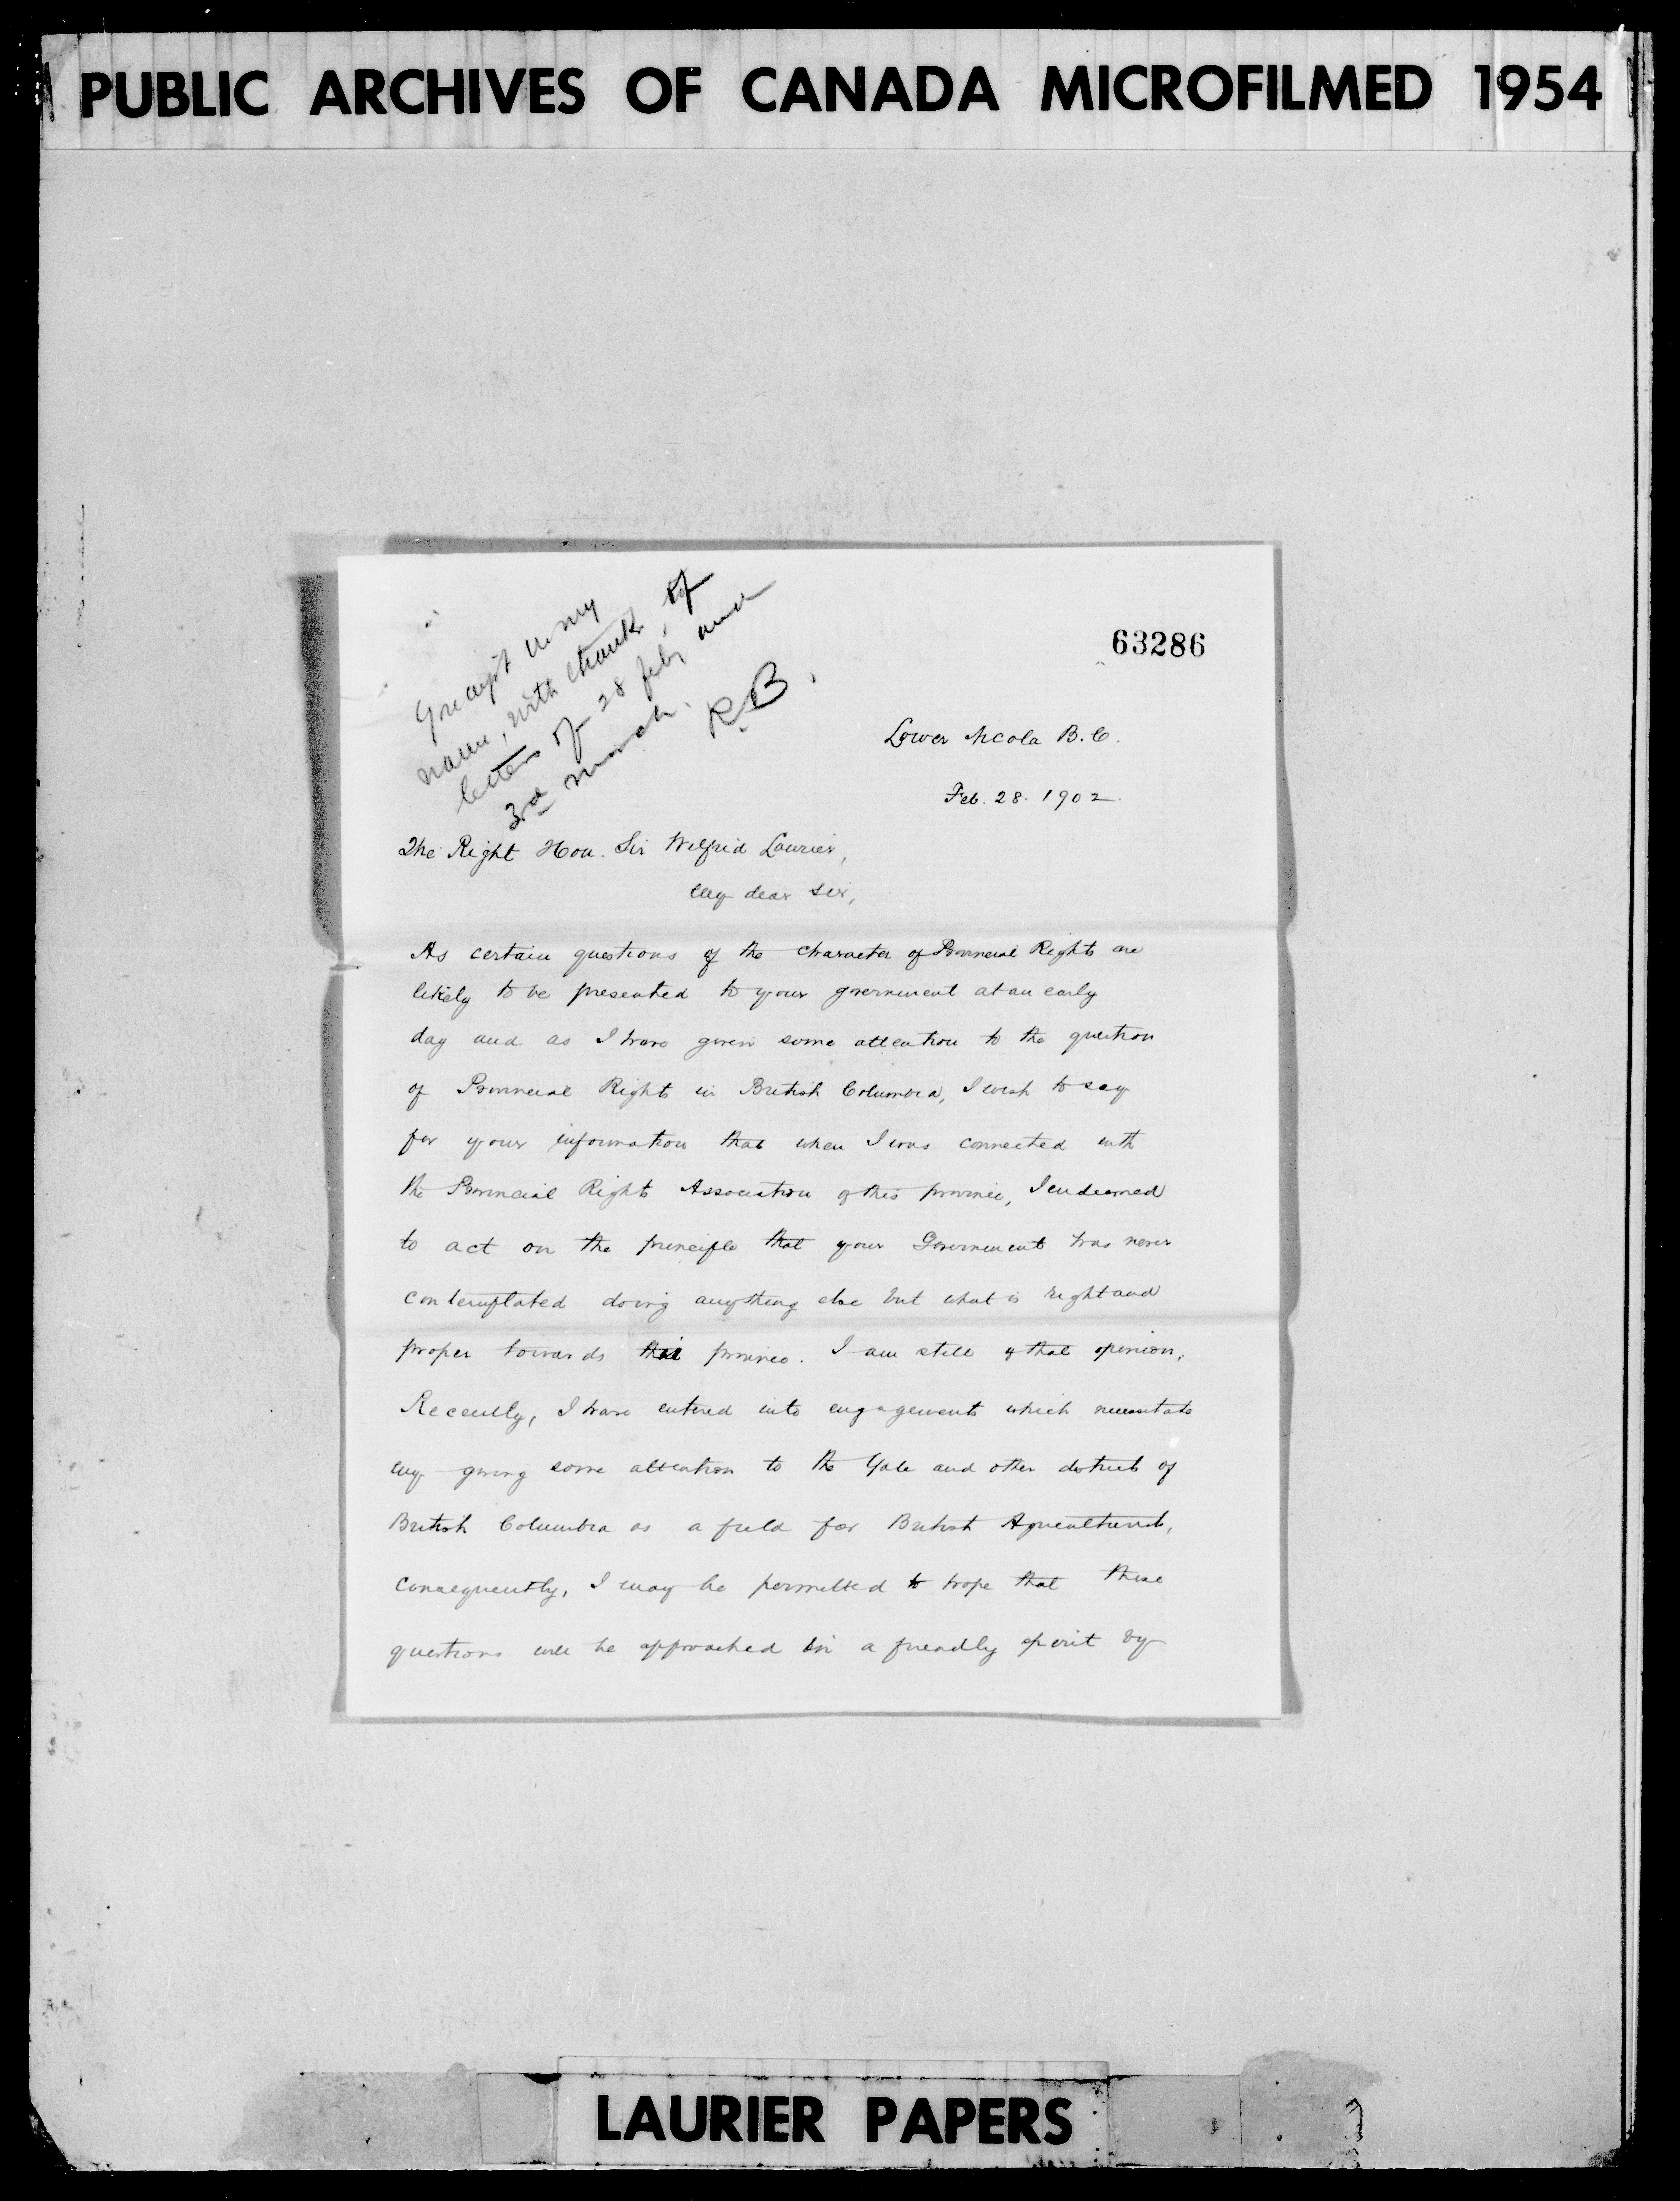 PUBLIC ARCHIVES OF CANADA MICROFILMED 1954
63286
in my
name, with thanks, of
letters of 28 feb, and
3rd march.
RB.
Lower Nicola B.C.
Feb. 28. 1902.
The Right Hon. Sir Wilfrid Laurier,
My dear Sir,
As certain questions of the character of Provincial Rights are
likely to be presented to your government at an early
day and as I have given some attention to the question
of Provincial Rights in British Columbia, I wish to say
for your information that when I was connected with
the Provincial Rights Association of this province, I endeavored
to act on the principle that your Government has never
contemplated doing anything else but what is right and
proper towards this province. I am still of that opinion.
Recently, I have entered into engagements which necessitate
my giving some attention to the Yale and other districts of
British Columbia as a field for British Agriculturists,
consequently, I may be permitted to hope that these
questions will be approached in a friendly spirit by
LAURIER PAPERS